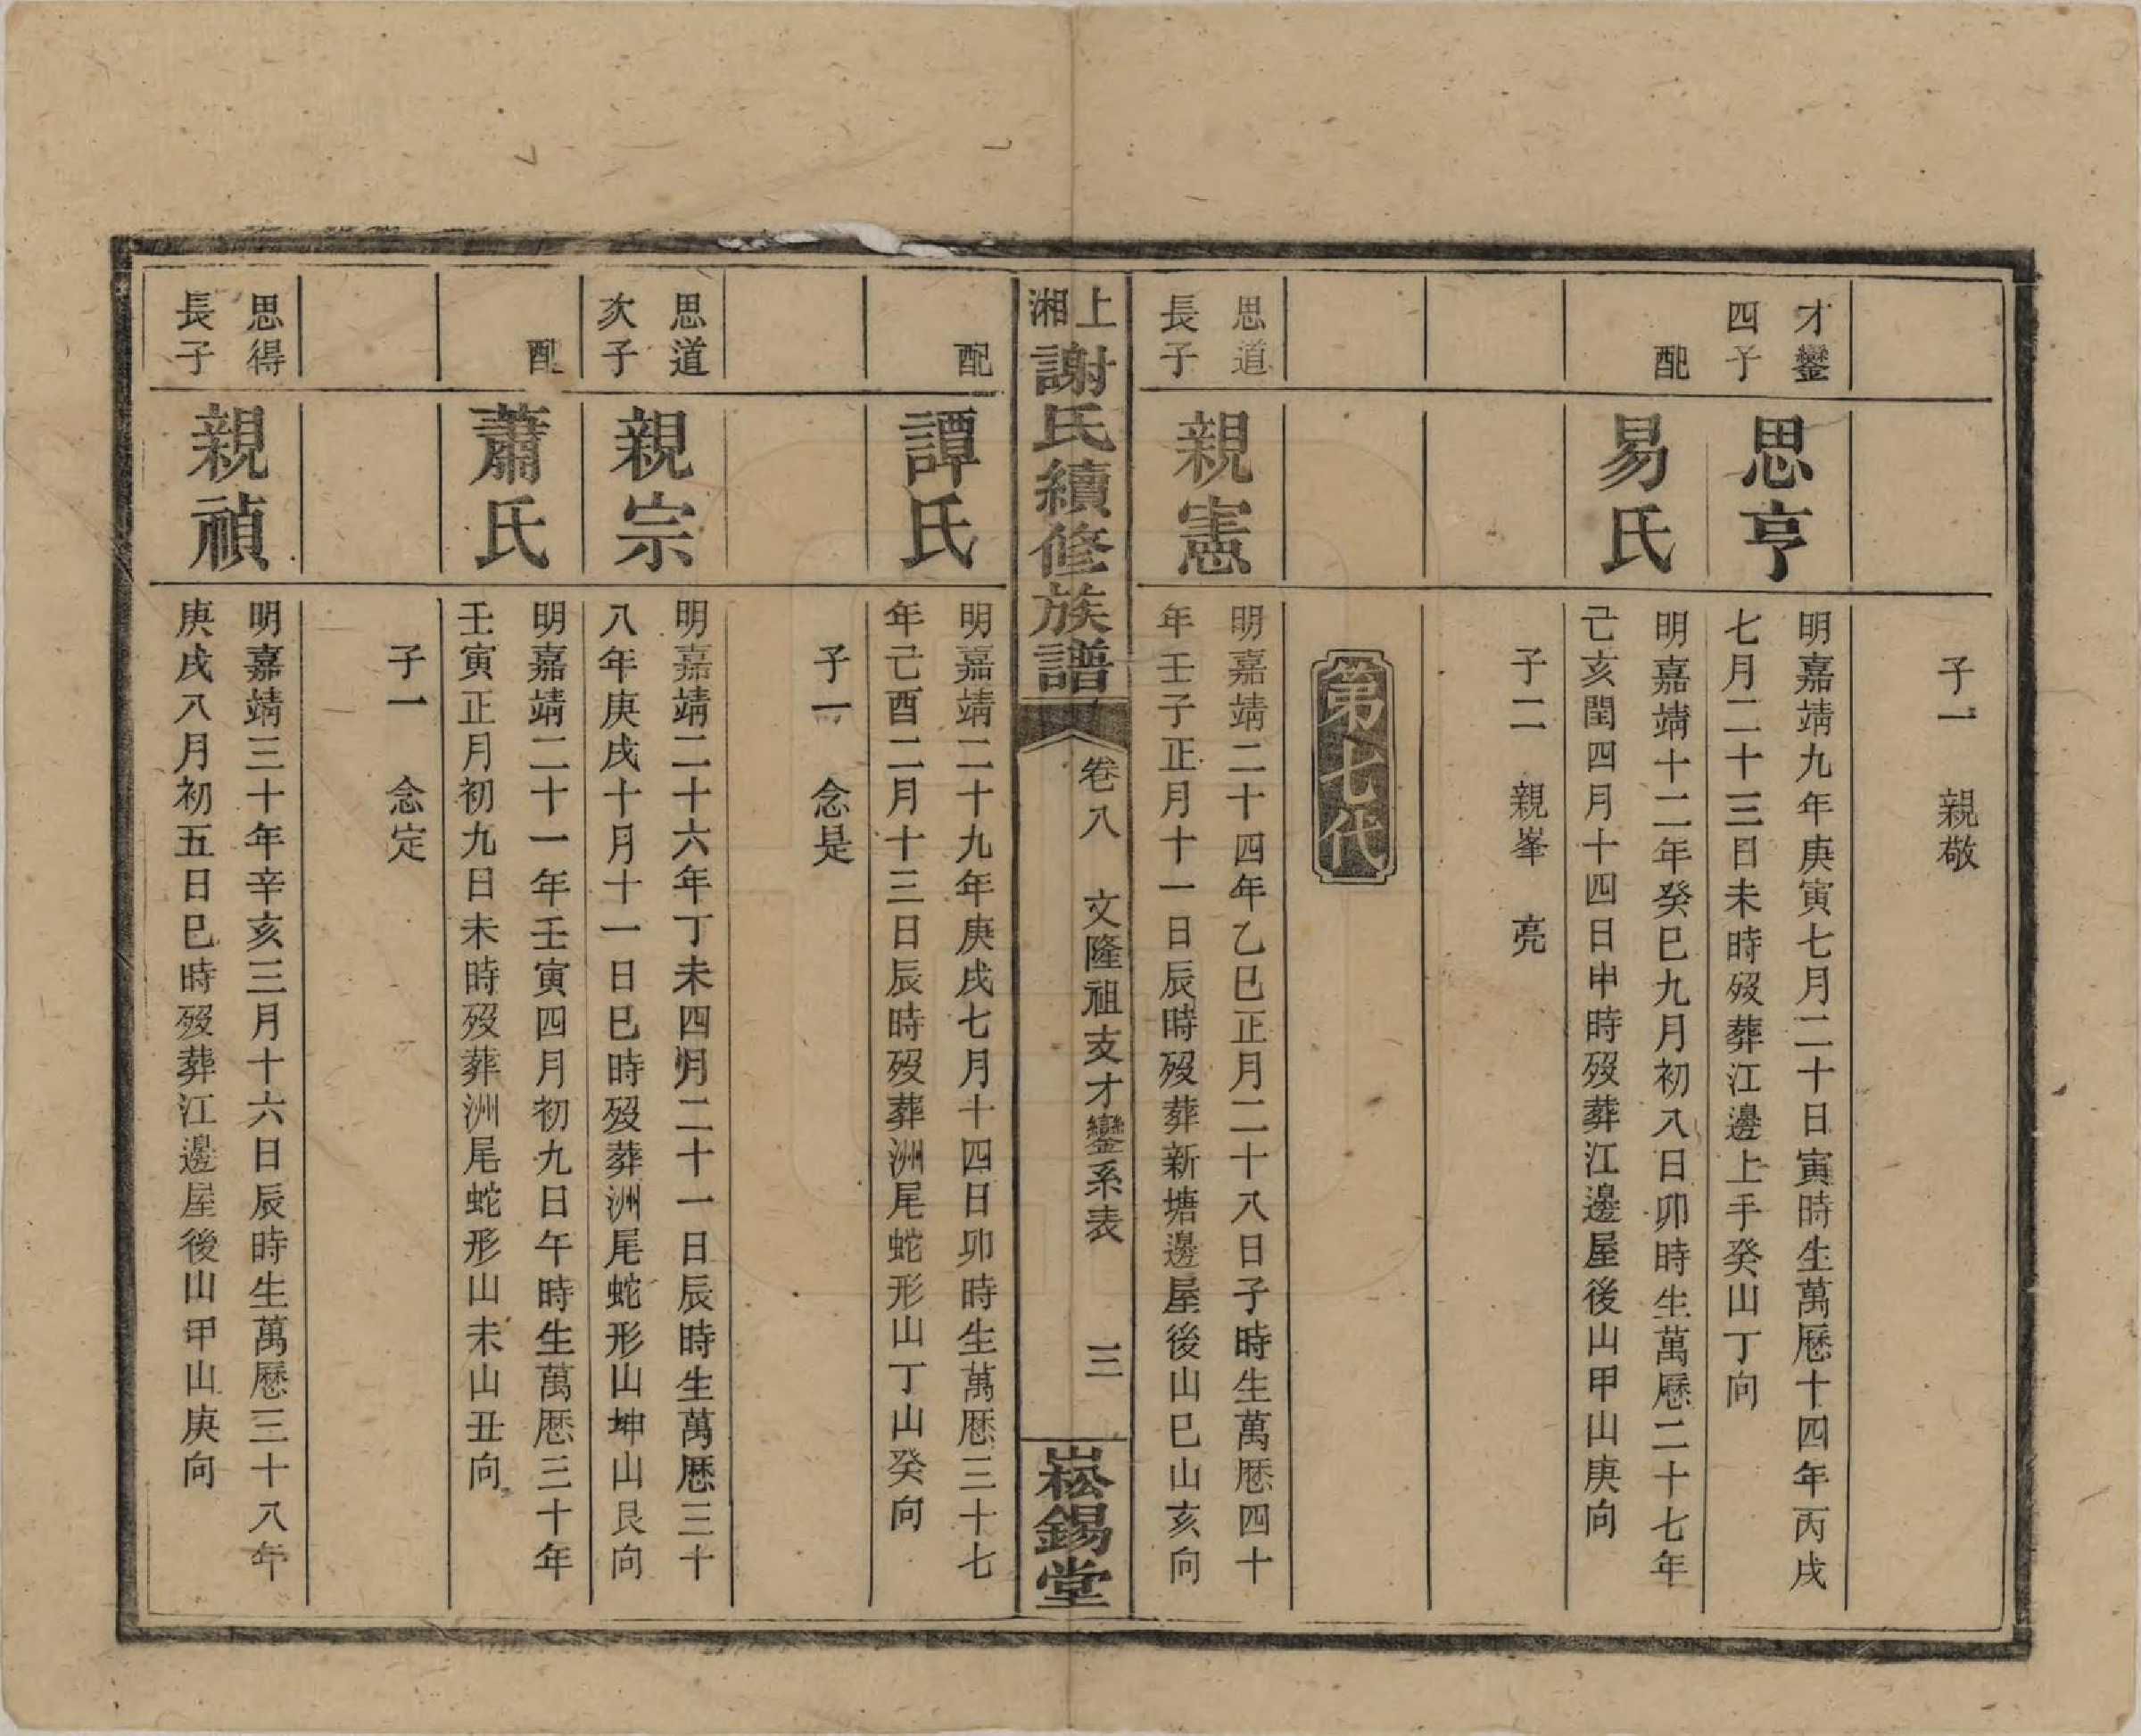 子一　親敬
才鑾
四子
思亨
明嘉靖九年庚寅七月二十日寅時生萬厯十四年丙戌
七月二十三日未時歿葬江邊上手癸山丁向
配
易氏
明嘉靖十二年癸巳九月初八日卯時生萬厯二十七年
己亥閏四月十四日申時歿葬江邊屋後山甲山庚向
子二　親峯　亮
第七代
思道
長子
親憲
明嘉靖二十四年乙巳正月二十八日子時生萬厯四十
年壬子正月十一日辰時歿葬新塘邊屋後山巳山亥向
上湘
謝氏續修族譜
卷八　文隆祖支才鑾系表　三
崧錫堂
配
譚氏
明嘉靖二十九年庚戌七月十四日卯時生萬厯三十七
年己酉二月十三日辰時歿葬洲尾蛇形山丁山癸向
子一　念是
思道
次子
親宗
明嘉靖二十六年丁未四月二十一日辰時生萬厯三十
八年庚戌十月十一日巳時歿葬洲尾蛇形山坤山艮向
配
蕭氏
明嘉靖二十一年壬寅四月初九日午時生萬厯三十年
壬寅正月初九日未時歿葬洲尾蛇形山未山丑向
子一　念定
思得
長子
親禎
明嘉靖三十年辛亥三月十六日辰時生萬厯三十八年
庚戌八月初五日巳時歿葬江邊屋後山甲山庚向